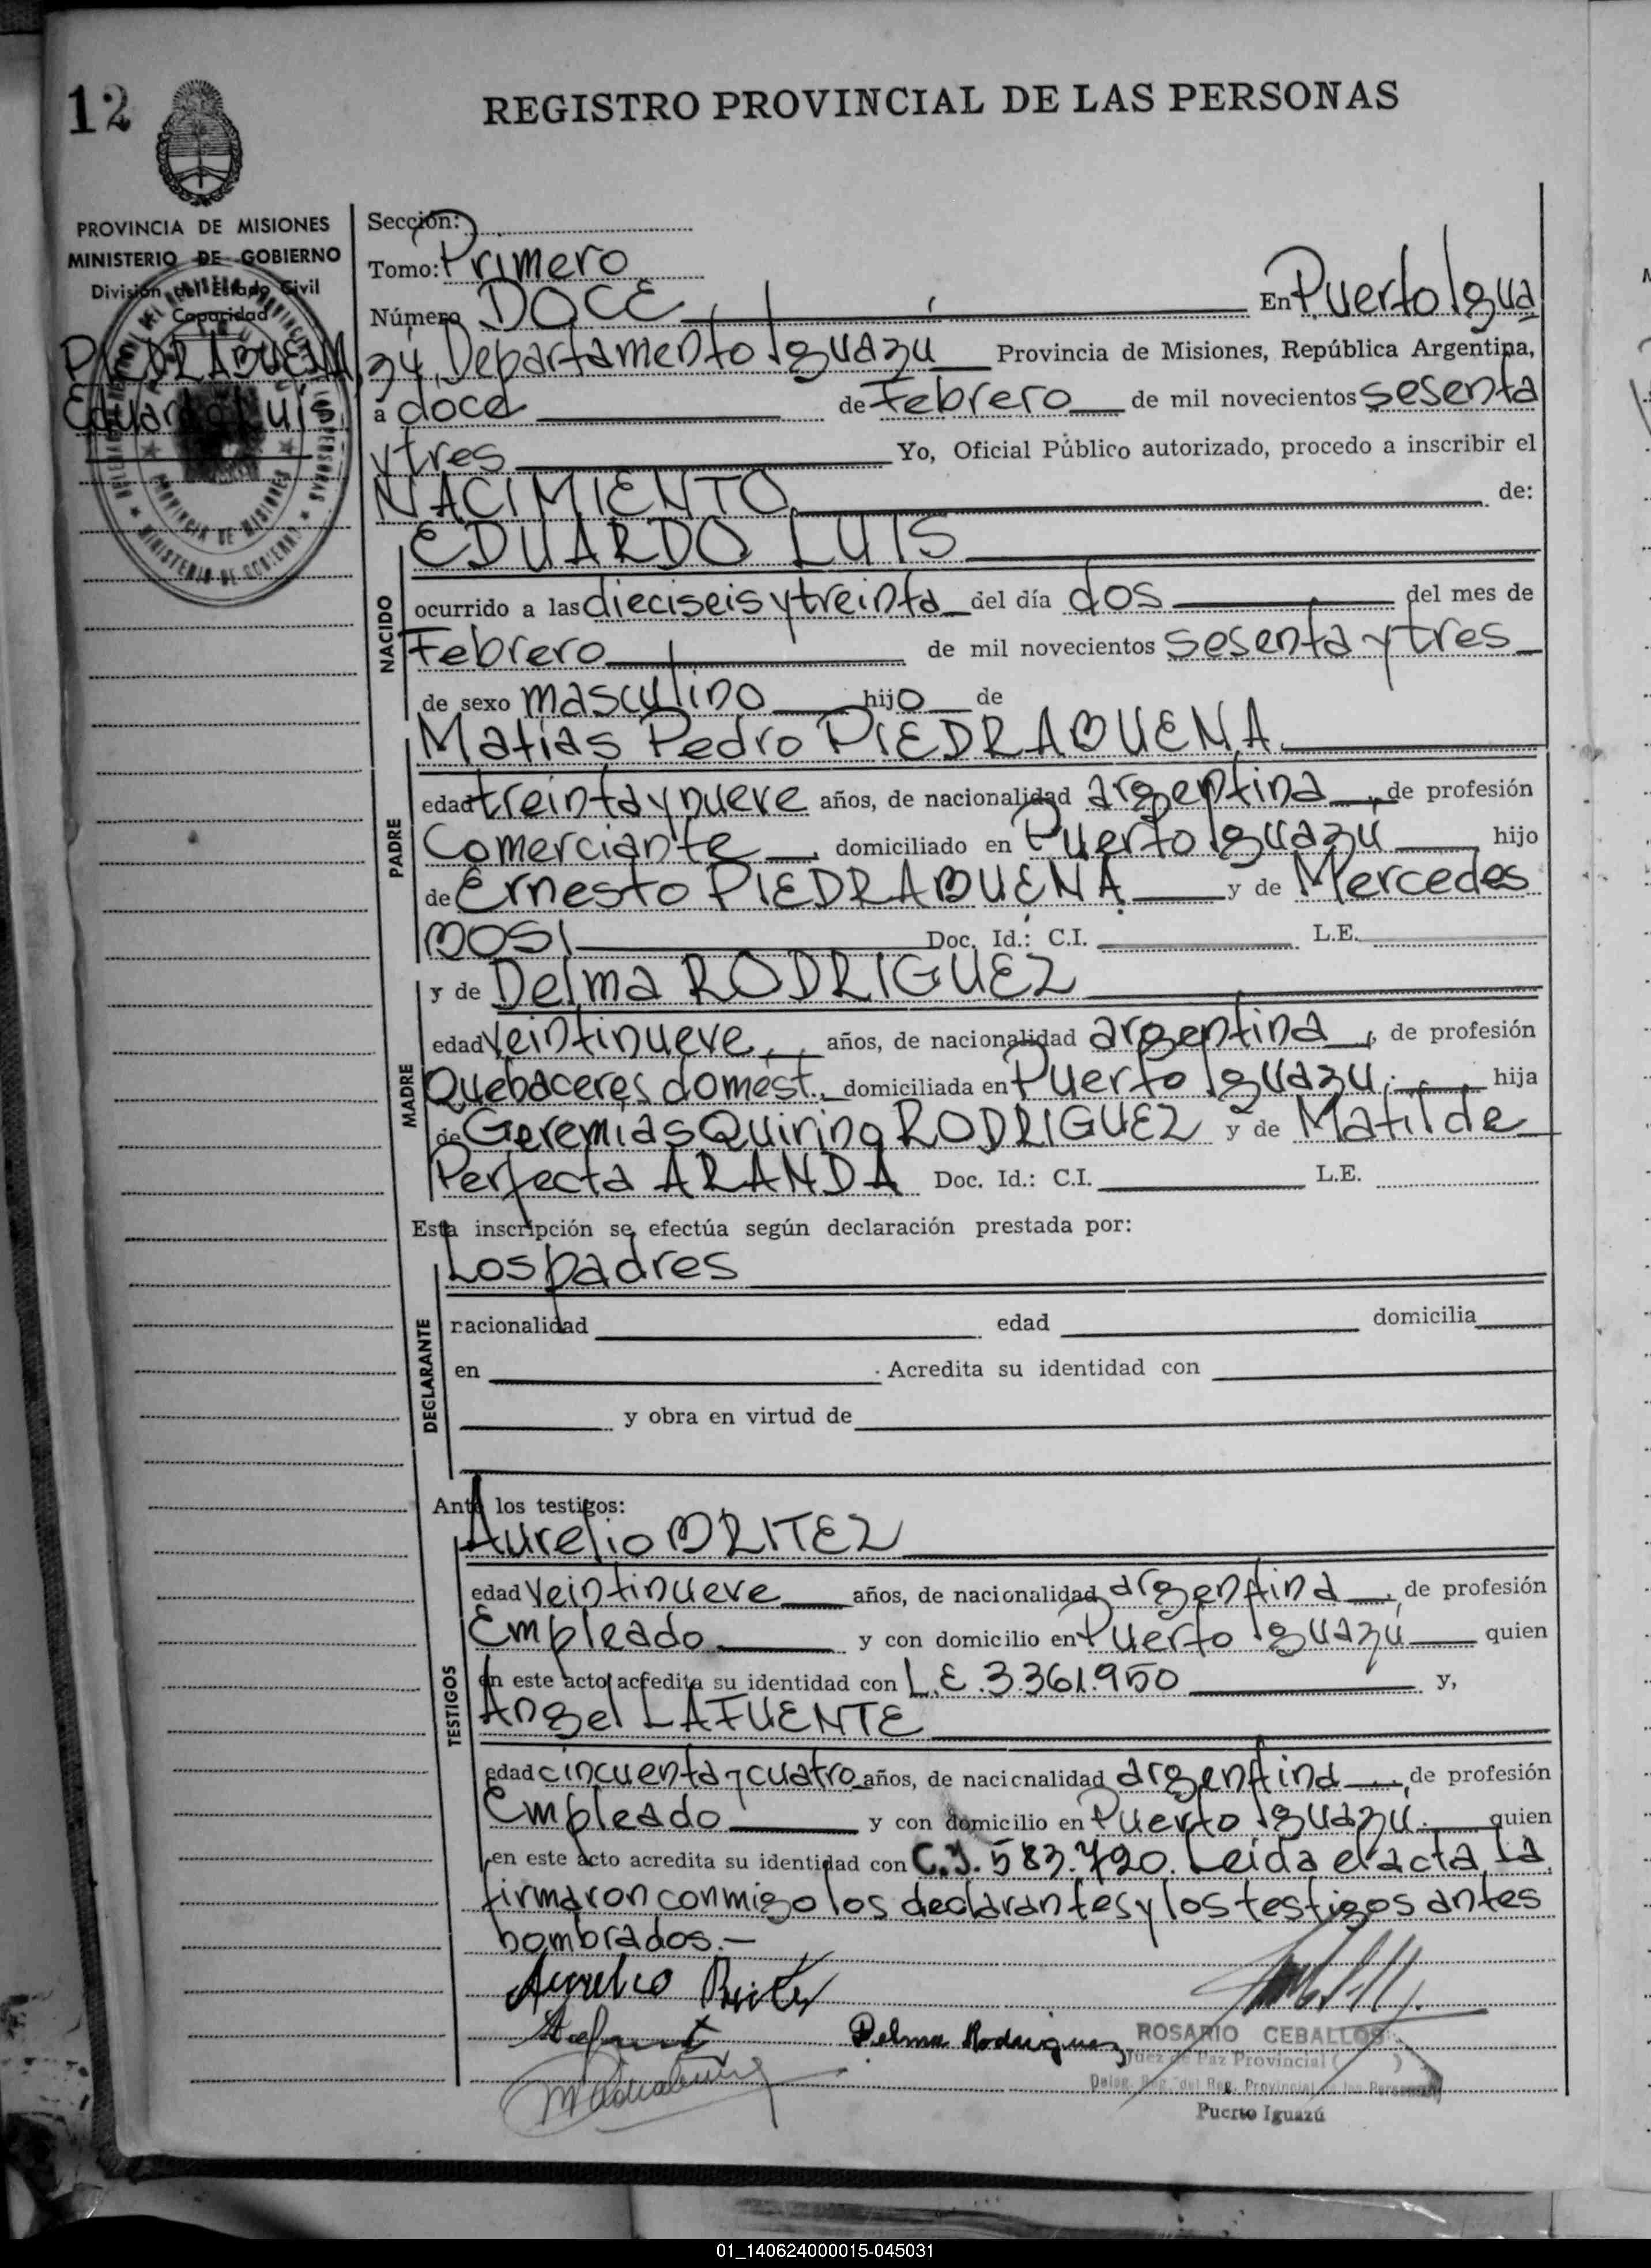 12
REGISTRO PROVINCIAL DE LAS PERSONAS
PROVINCIA DE MISIONES
MINISTERIO DE GOBIERNO
División del Estado Civil
Capacidad
PIEDRABUENA,
Eduardo Luis
Sección:
Tomo: Primero
Número DOCE En Puerto Igua
zú, Departamento Iguazú Provincia de Misiones, República Argentina,
a doce de Febrero de mil novecientos sesenta
y tres Yo, Oficial Público autorizado, procedo a inscribir el
NACIMIENTO de:
NACIDO
EDUARDO LUIS
ocurrido a las dieciseis y treinta del día dos del mes de
Febrero de mil novecientos sesenta y tres
de sexo masculino hijo de
PADRE
Matias Pedro PIEDRABUENA
edad treinta y nueve años, de nacionalidad argentina, de profesión
Comerciante, domiciliado en Puerto Iguazú hijo
de Ernesto PIEDRABUENA y de Mercedes
BOSI Doc. Id.: C.I. L.E.
MADRE
y de Delma RODRIGUEZ
edad veintinueve años, de nacionalidad argentina, de profesión
Quehaceres domést. domiciliada en Puerto Iguazú, hija
de Geremias Quirino RODRIGUEZ y de Matilde
Perfecta ARANDA Doc. Id.: C.I. L.E.
Esta inscripción se efectúa según declaración prestada por:
DECLARANTE
Los padres
nacionalidad edad domicilia
en Acredita su identidad con
y obra en virtud de
Ante los testigos:
TESTIGOS
Aurelio BRITEZ
edad veintinueve años, de nacionalidad argentina, de profesión
Empleado y con domicilio en Puerto Iguazú quien
en este acto acredita su identidad con L.E. 3.361.950 y,
Angel LAFUENTE
edad cincuenta y cuatro años, de nacionalidad argentina, de profesión
Empleado y con domicilio en Puerto Iguazú. quien
en este acto acredita su identidad con C.I. 583.720. Leida el acta, la
firmaron conmigo los declarantes y los testigos antes
nombrados.-
Aurelio Britez
Delma Rodriguez
ROSARIO CEBALLOS
Juez de Paz Provincial
Deleg. Reg. del Reg. Provincial de las Personas
Puerto Iguazú
01_140624000015-045031